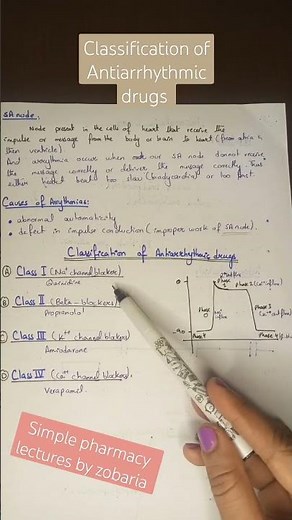 Classification of
Antiarrhythmic
drugs
SA node.
Node present in the cells of heart that receive the
impulse or message from the body or brain to heart (from atria &
then ventricle)
And arrythmia occurs when our SA node donot receive
the message correctly or deliver the message correctly. Thus
either heart beat too slow (bradycardia) or too fast.
Causes of Arrythmias:
• abnormal automaticity
• defect in impulse conduction (improper work of SA node).
Classification of Antiarrhythmic drugs
A Class I (Na+ channel blocker)
Quinidine
B Class II (Beta-blockers)
Propranolol
C Class III (K+ channel blockers)
Amiodarone
D Class IV (Ca++ channel blockers).
Verapamil.
0
Phase 2
Phase 0
Phase 3
Phase 4
Phase 4
Simple pharmacy
lectures by zobaria